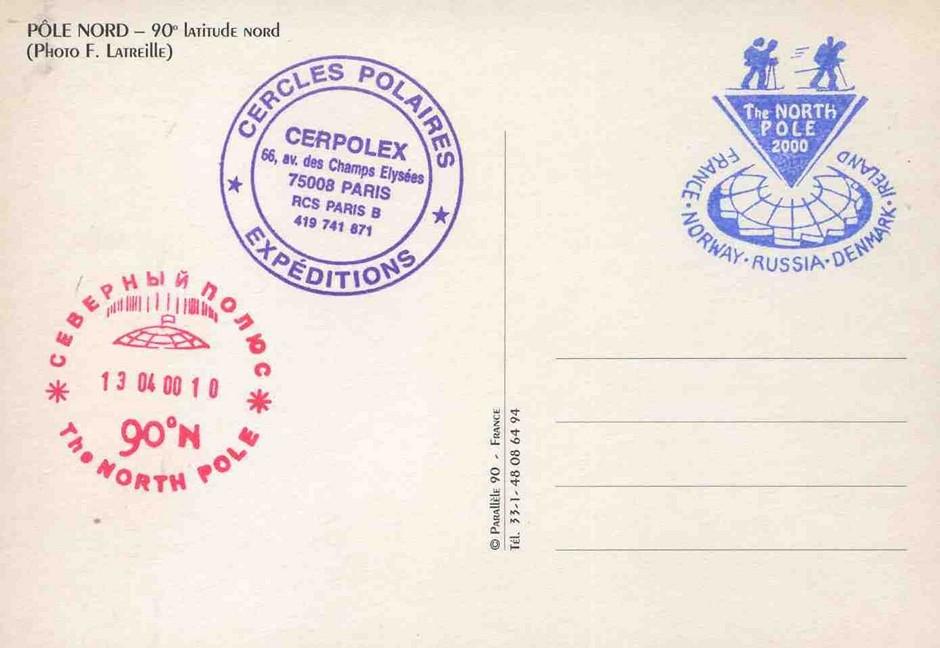 PÔLE NORD – 90° latitude nord
(Photo F. Latreille)
CERCLES POLAIRES
CERPOLEX
66, av. des Champs Elysées
75008 PARIS
RCS PARIS B
419 741 671
EXPÉDITIONS
The NORTH
POLE
2000
FRANCE · NORWAY · RUSSIA · DENMARK · IRELAND
СЕВЕРНЫЙ ПОЛЮС
13 04 00 10
90°N
The NORTH POLE
© Parallèle 90 - France
Tél. 33-1- 48 08 64 94